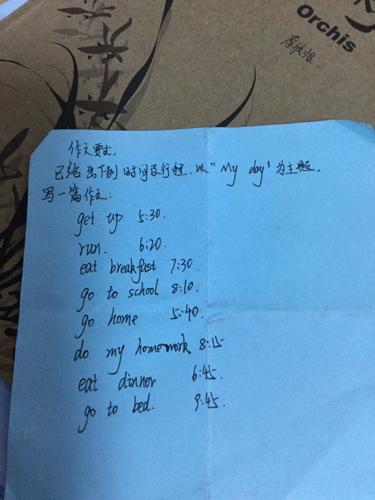 Orchis
作文要求:
已给出下列时间及行程,以"My day"为主题,
写一篇作文:
get up 5:30.
run. 6:20.
eat breakfast 7:30.
go to school 8:10.
go home 5:40.
do my homework 8:15
eat dinner 6:45.
go to bed. 9:45.